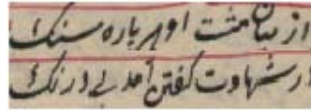 از میان مشت او هر پاره سنگ
در شهادت گفتن آمد بی درنگ